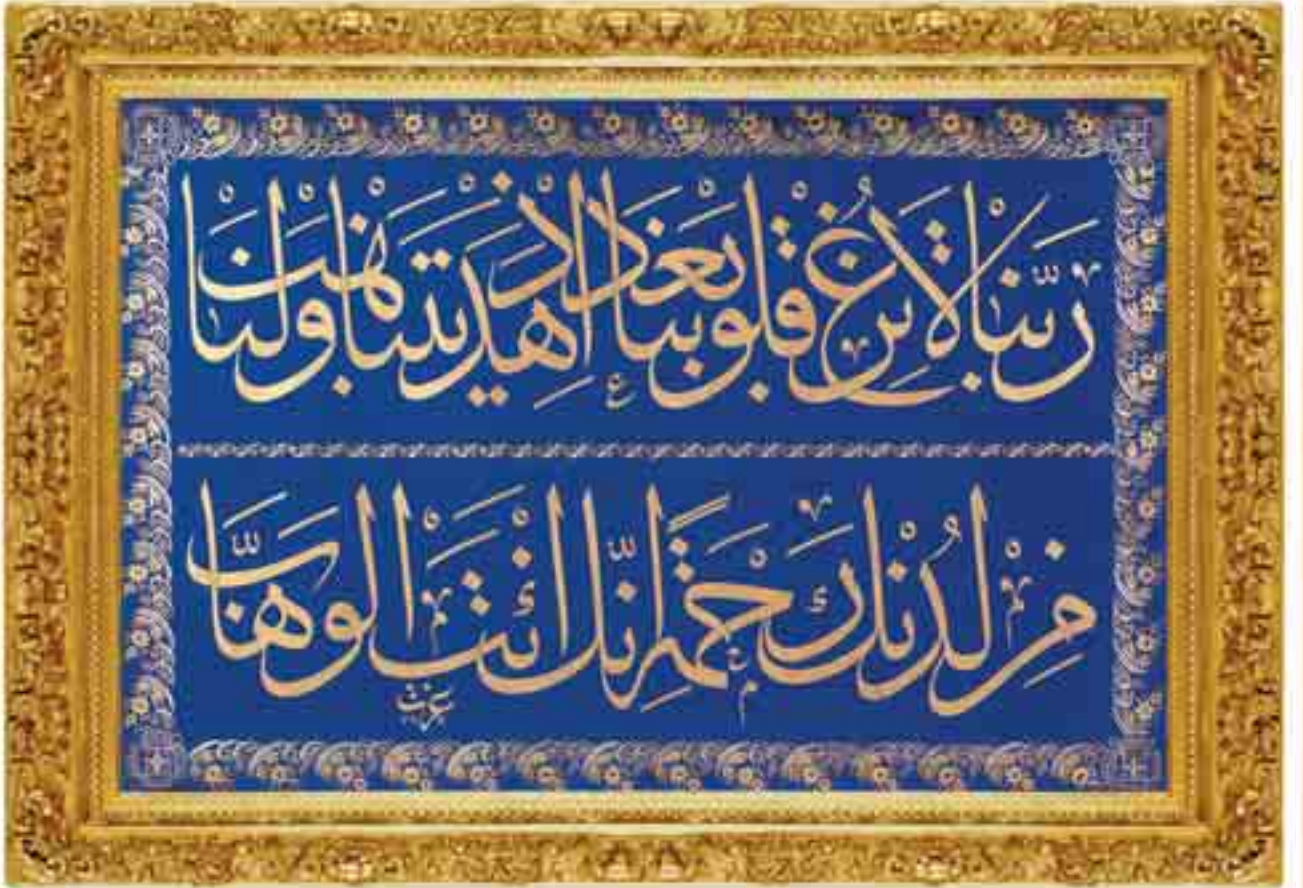 رَبَّنَا لَا تُزِغْ قُلُوبَنَا بَعْدَ إِذْ هَدَيْتَنَا وَهَبْ لَنَا
مِنْ لَدُنْكَ رَحْمَةً إِنَّكَ أَنْتَ الْوَهَّابُ
عزت